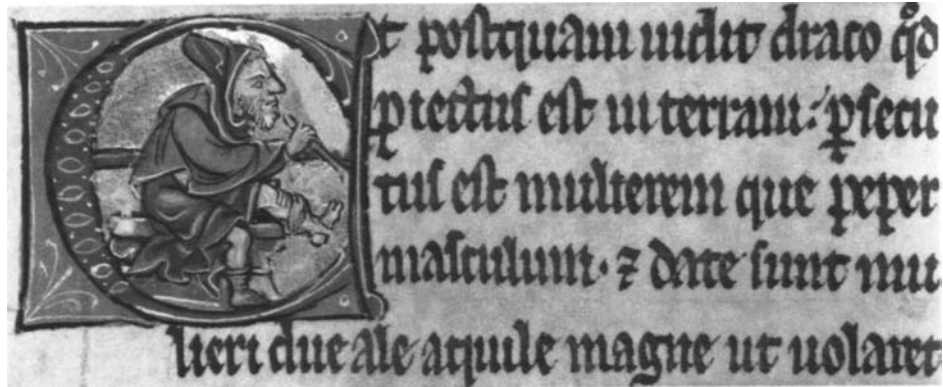 Et postquam uidit draco qd
piectus est in terram: psecu
tus est mulierem que peper
masculum. ⁊ date sunt mu
lieri due ale aquile magne ut uolaret